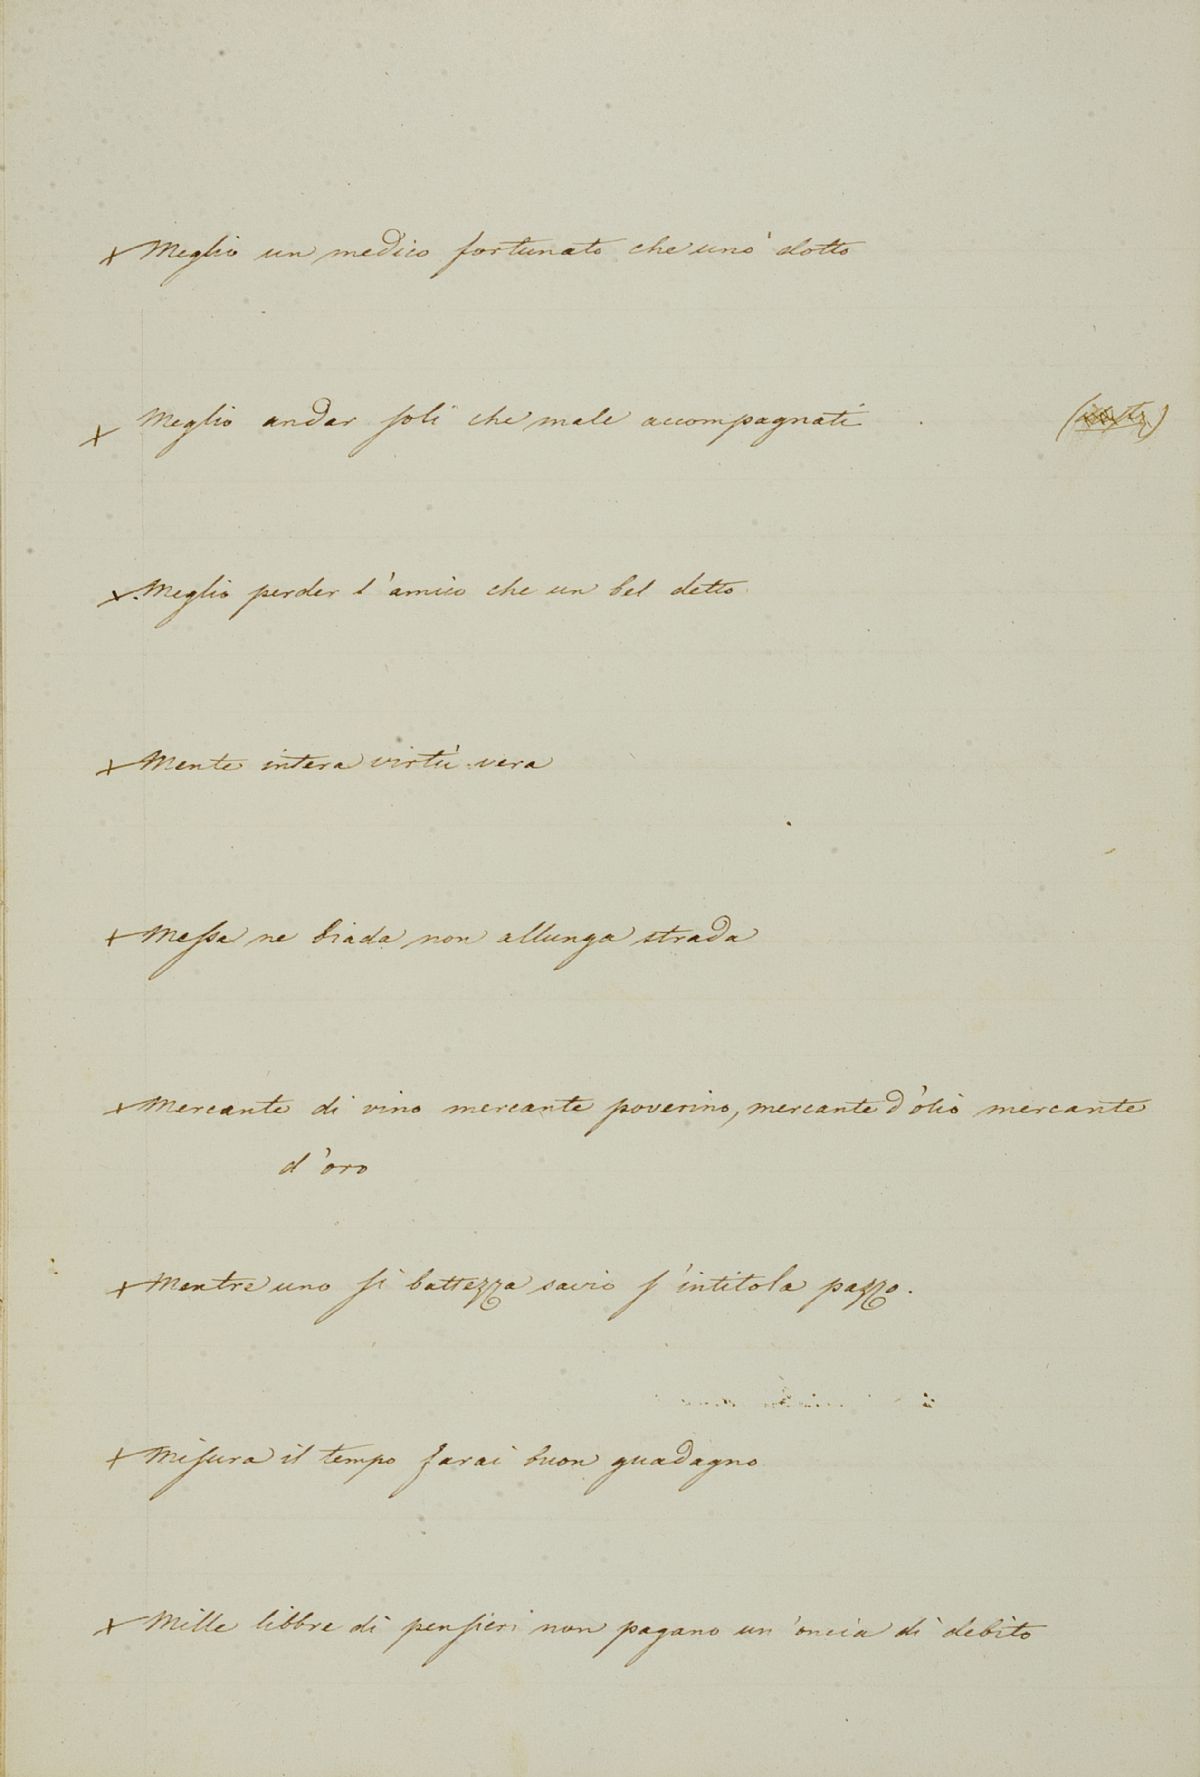 x Meglio un medico fortunato che uno dotto
x Meglio andar soli che male accompagnati
x Meglio perder l'amico che un bel detto
x Mente intera virtù vera
x Messa ne biada non allunga strada
x Mercante di vino mercante poverino, mercante d'olio mercante
d'oro
x Mentre uno si battezza savio s'intitola pazzo.
x Misura il tempo farai buon guadagno
x Mille libbre di pensieri non pagano un'oncia di debito